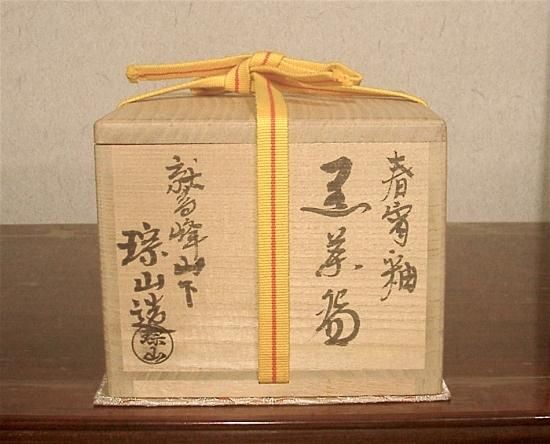 春宵釉
玉茶碗
鷲峰山下
琮山造
琮山